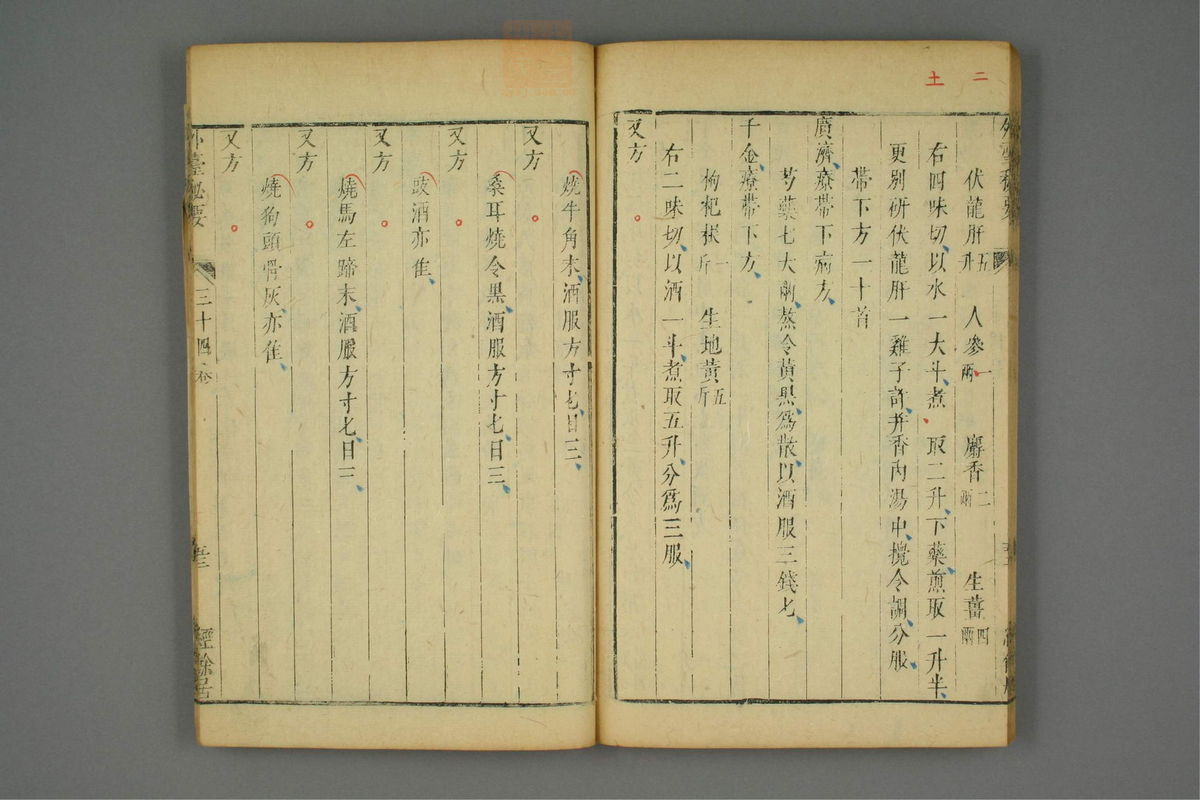 二
土
伏龍肝五升　人參一兩　麝香二兩　生薑四兩
右四味切以水一大斗煮取二升下藥煎取一升半
更別研伏龍肝一雞子許并香內湯中攪令調分服
帶下方一十首
廣濟療帶下病方
芍藥七大兩熬令黄黒為散以酒服三錢匕
千金療帶下方
枸杞根一斤　生地黄五斤
右二味切以酒一斗煮取五升分爲三服
又方
燒牛角末酒服方寸匕日三
又方
桑耳燒令黒酒服方寸匕日三
又方
豉酒亦佳
又方
燒馬左蹄末酒服方寸匕日三
又方
燒狗頭骨灰亦佳
又方
外臺祕要
三十四卷
經餘居